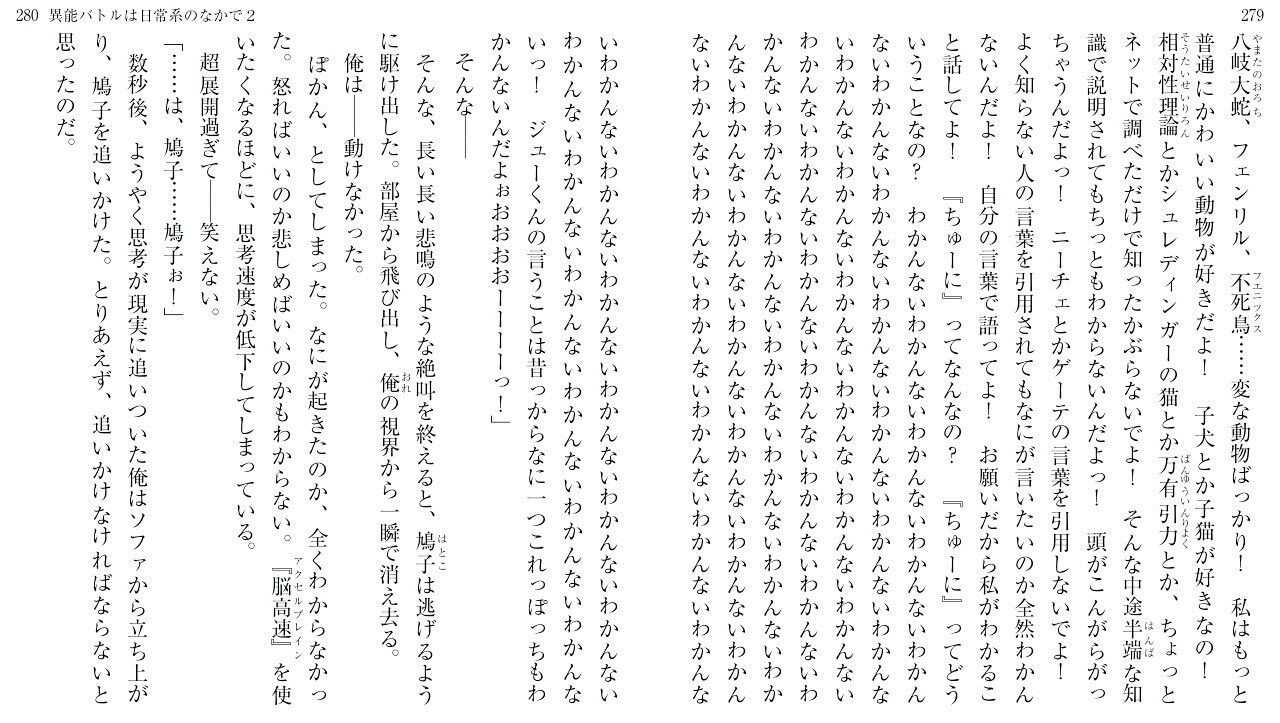 280 異能バトルは日常系のなかで２
279
八岐大蛇、フェンリル、不死鳥……変な動物ばっかり！　私はもっと
普通にかわいい動物が好きだよ！　子犬とか子猫が好きなの！
相対性理論とかシュレディンガーの猫とか万有引力とか、ちょっと
ネットで調べただけで知ったかぶらないでよ！　そんな中途半端な知
識で説明されてもちっともわからないんだよっ！　頭がこんがらがっ
ちゃうんだよっ！　ニーチェとかゲーテの言葉を引用しないでよ！
よく知らない人の言葉を引用されてもなにが言いたいのか全然わかん
ないんだよ！　自分の言葉で語ってよ！　お願いだから私がわかるこ
と話してよ！　『ちゅーに』ってなんなの？　『ちゅーに』ってどう
いうことなの？　わかんないわかんないわかんないわかんないわかん
ないわかんないわかんないわかんないわかんないわかんないわかんな
いわかんないわかんないわかんないわかんないわかんないわかんない
わかんないわかんないわかんないわかんないわかんないわかんないわ
かんないわかんないわかんないわかんないわかんないわかんないわか
んないわかんないわかんないわかんないわかんないわかんないわかん
ないわかんないわかんないわかんないわかんないわかんないわかんな
いわかんないわかんないわかんないわかんないわかんないわかんない
わかんないわかんないわかんないわかんないわかんないわかんな
いっ！　ジューくんの言うことは昔っからなに一つこれっぽっちもわ
かんないんだよぉおおおおーーーーっ！」
そんな――
そんな、長い長い悲鳴のような絶叫を終えると、鳩子は逃げるよう
に駆け出した。部屋から飛び出し、俺の視界から一瞬で消え去る。
俺は――動けなかった。
ぽかん、としてしまった。なにが起きたのか、全くわからなかっ
た。怒ればいいのか悲しめばいいのかもわからない。『脳高速』を使
いたくなるほどに、思考速度が低下してしまっている。
超展開過ぎて――笑えない。
「……は、鳩子……鳩子ぉ！」
数秒後、ようやく思考が現実に追いついた俺はソファから立ち上が
り、鳩子を追いかけた。とりあえず、追いかけなければならないと
思ったのだ。
やまたのおろち
フエニツクス
そうたいせいりろん
ばんゆういんりよく
はんぱ
はとこ
おれ
アクセルブレイン